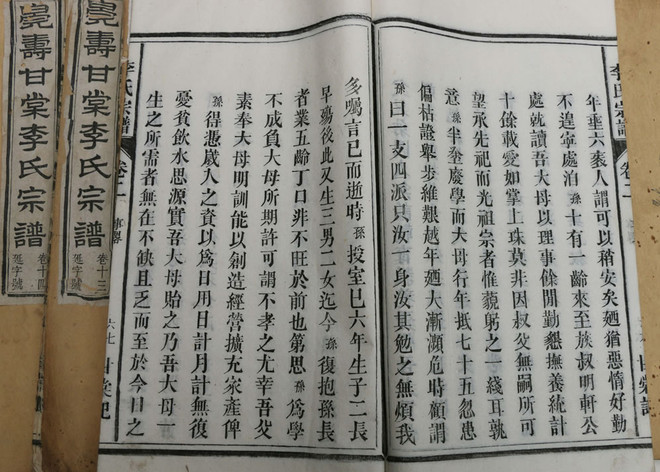 李氏宗譜
卷二
甘棠記
年垂六袠人謂可以稍安矣廼猶惡惰好勤
不遑寧處洎孫十有一齡來至族叔明軒公
處就讀吾大母以理事餘閒勤懇撫養統計
十餘載愛如掌上珠莫非因叔父無嗣所可
望承先祀而光祖宗者惟藐躬之一綫耳孰
意孫半塗廢學而大母行年抵七十五忽患
偏枯證舉步維艱越年廼大漸瀕危時顧謂
孫曰一支四派只汝一身汝其勉之無煩我
多囑言已而逝時孫授室已六年生子二長
早殤後此又生三男二女迄今孫復抱孫長
者業五齡丁口非不旺於前也第思孫為學
不成負大母所期許可謂不孝之尤幸吾父
素奉大母明訓能以創造經營擴充家產俾
孫得憑歲入之資以為日用日計月計無復
憂貧飲水思源實吾大母貽之乃吾大母一
生之所需者無在不缺且乏而至於今日之
李氏宗譜
卷二
事畧
六七
甘棠記
壽甘棠李氏宗譜
卷十三
延字號
壽甘棠李氏宗譜
卷十四
延字號